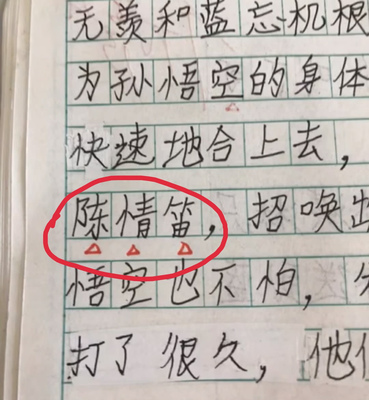 无羡和蓝忘机根
为孙悟空的身体
快速地合上去，
陈情笛，招唤出
悟空也不怕，
打了很久，他